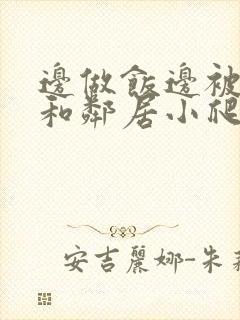 邊做飯邊被
和鄰居小爬
安吉麗娜-朱